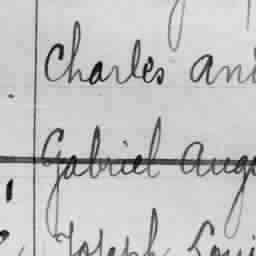 Charles ani
Gabriel Augu
Joseph Loui